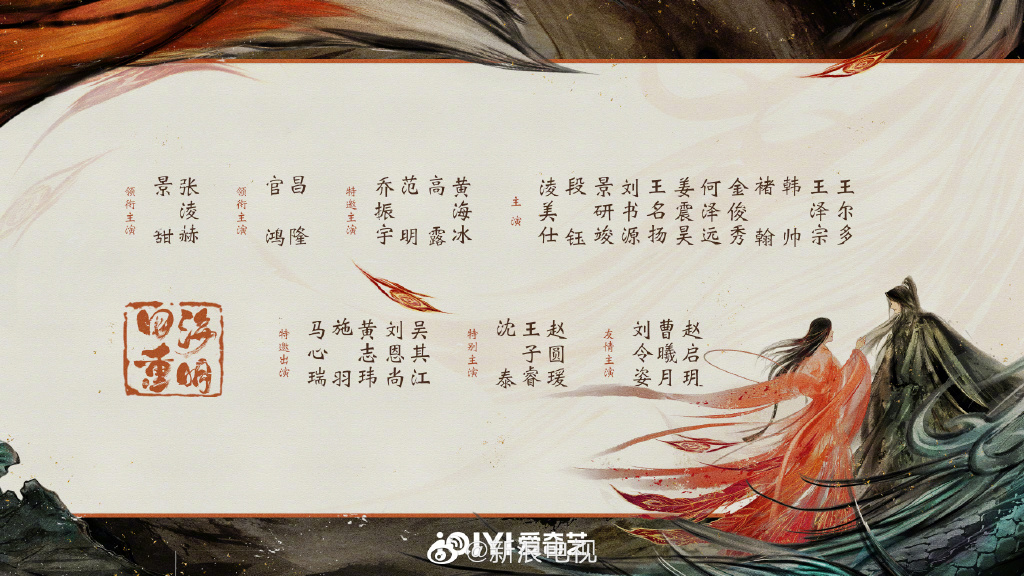 领衔主演
景甜
张凌赫
领衔主演
官鸿
昌隆
特邀主演
乔振宇
范明
高露
黄海冰
主演
凌美仕
段钰
景研竣
刘书源
王名扬
姜震昊
何泽远
金俊秀
褚翰
韩帅
王泽宗
王尔多
四海
重明
特邀出演
马心瑞
施羽
黄志玮
刘恩尚
吴其江
特别主演
沈泰
王子睿
赵圆瑗
友情主演
刘令姿
曹曦月
赵启玥
iQIYI 爱奇艺
@新浪电视